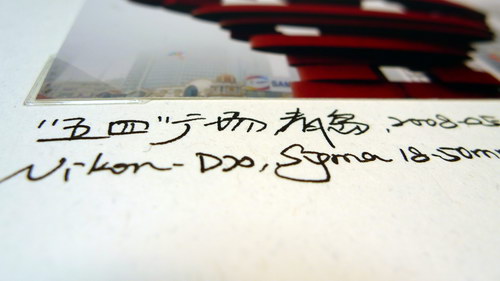 "五四"广场 青岛, 2008-05
Nikon-D70, Sigma 18-50mm